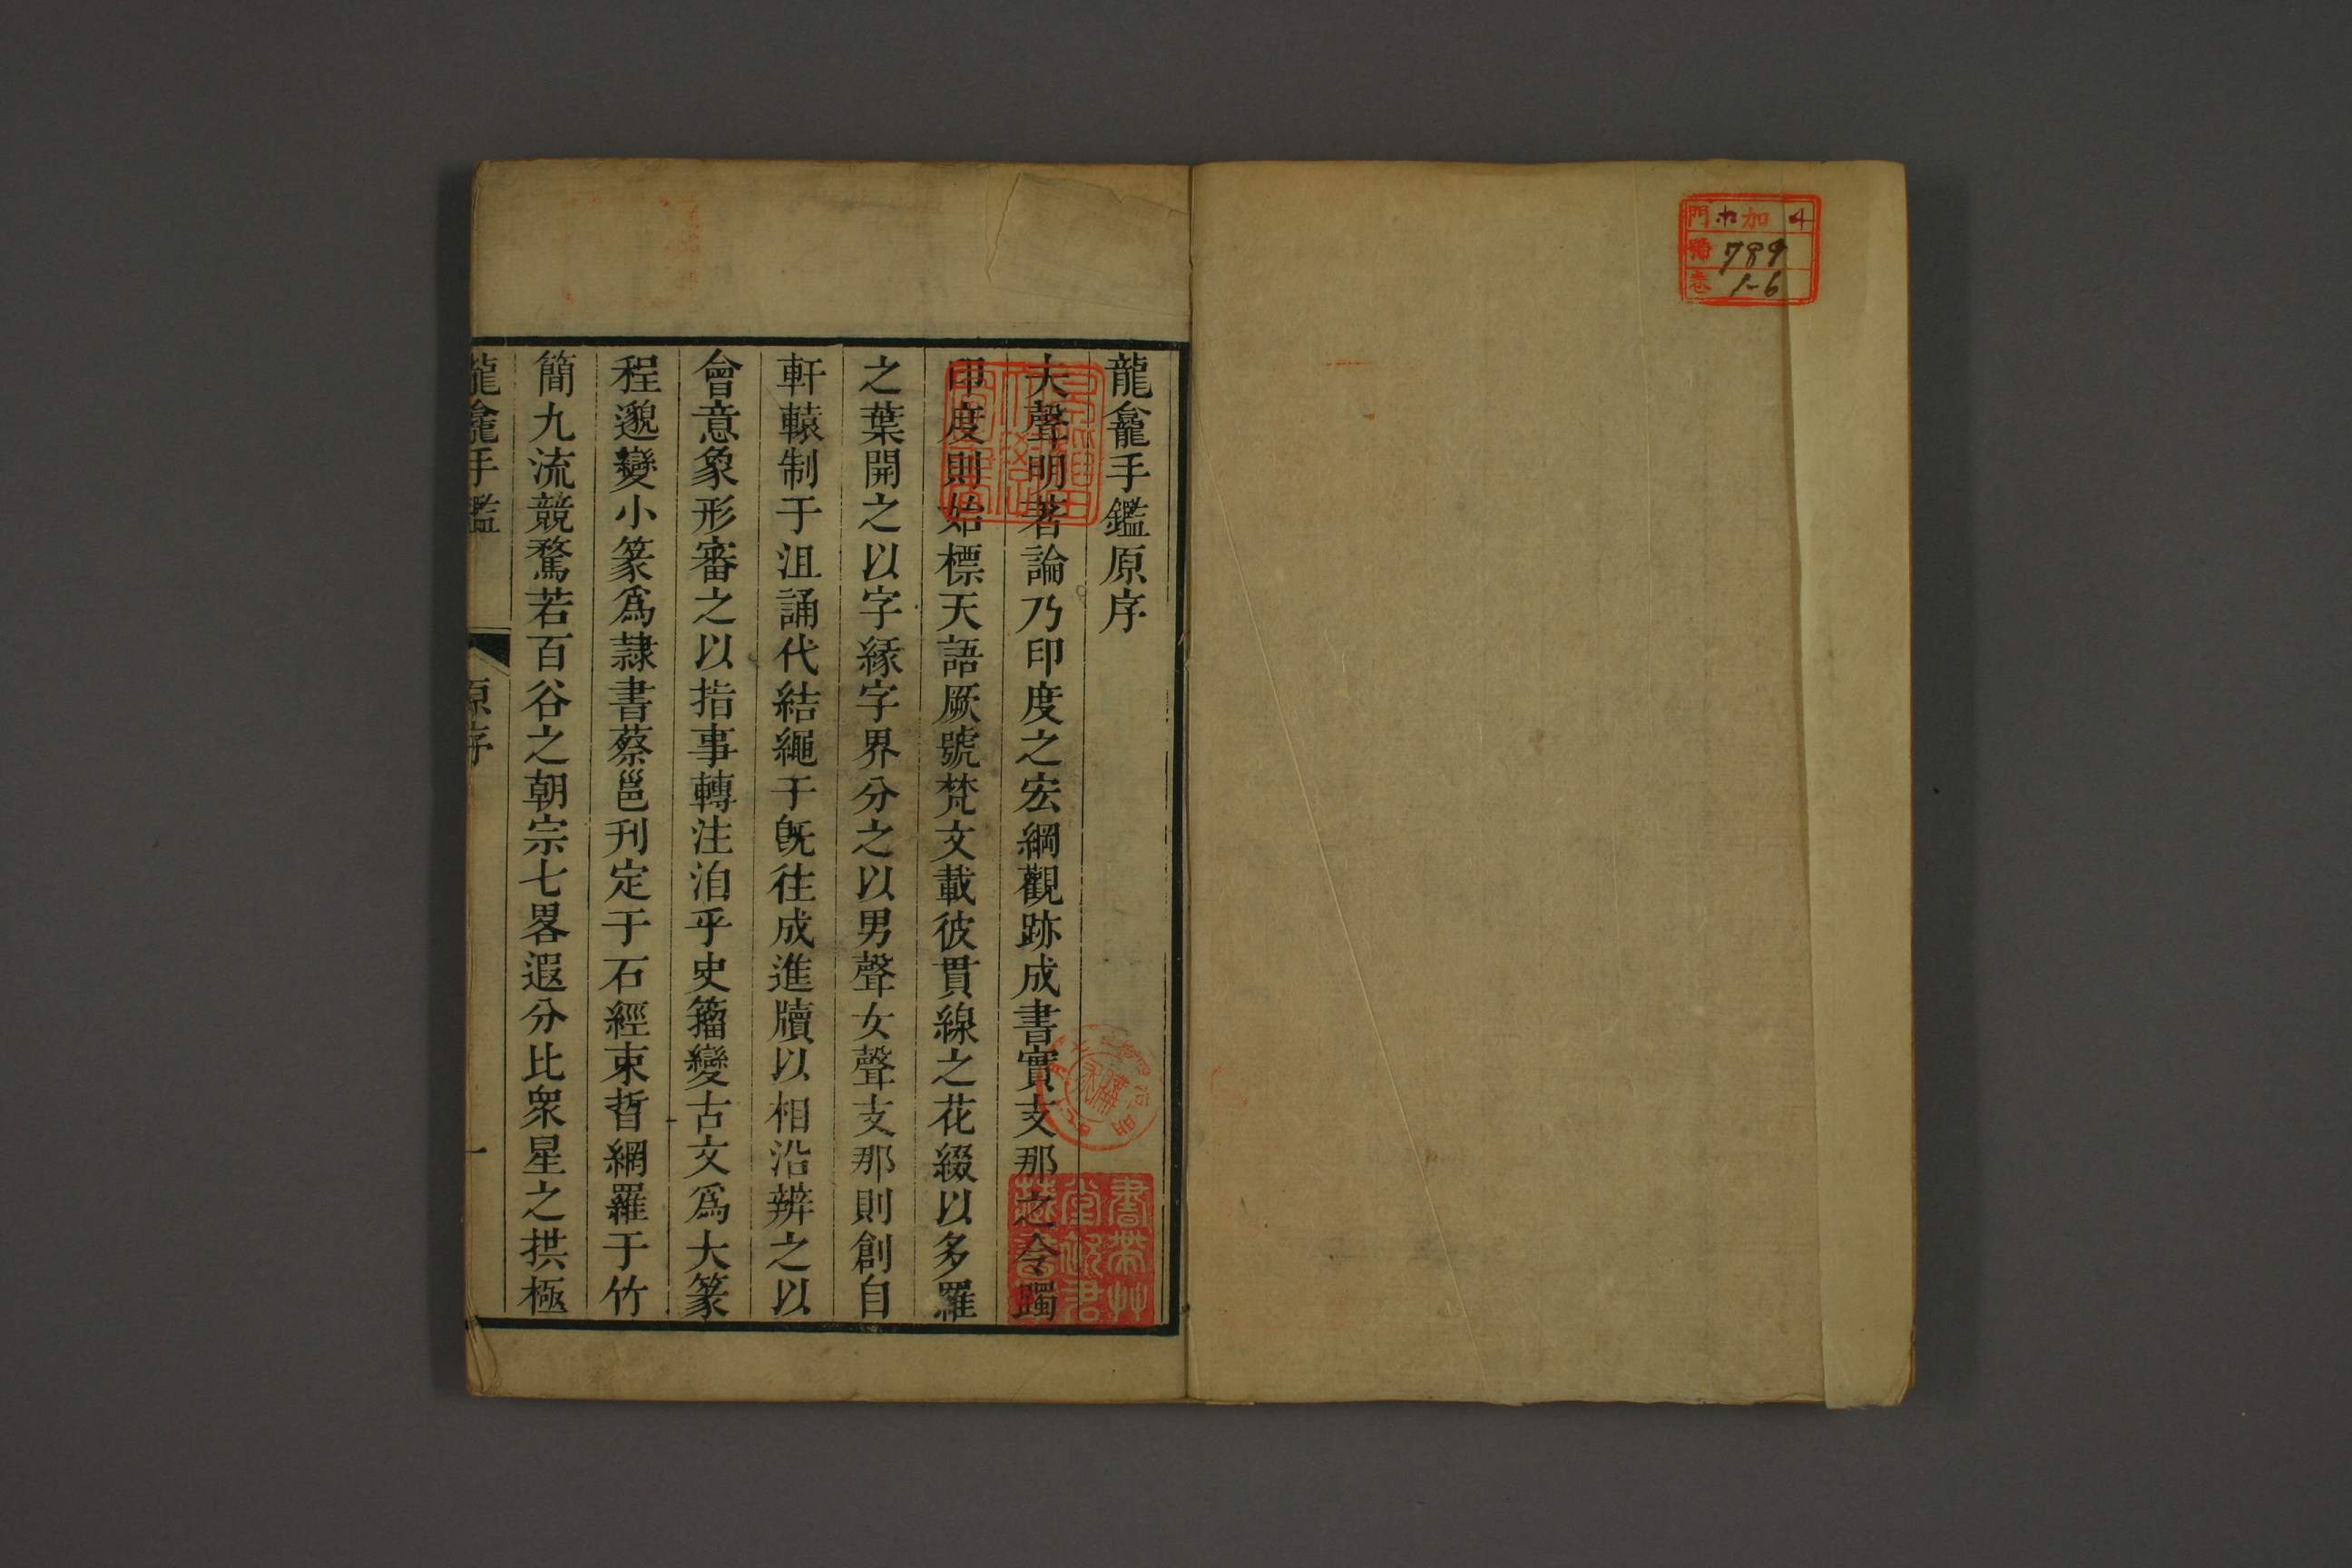 門 ホ 加 4
番 789
卷 1-6
龍龕手鑑原序
夫聲明著論乃印度之宏綱觀跡成書實支那之令躅
印度則始標天語厥號梵文載彼貫線之花綴以多羅
之葉開之以字緣字界分之以男聲女聲支那則創自
軒轅制于沮誦代結繩于旣往成進牘以相沿辨之以
會意象形審之以指事轉注洎乎史籀變古文爲大篆
程邈變小篆爲隷書蔡邕刊定于石經束晳網羅于竹
簡九流競騖若百谷之朝宗七畧遐分比衆星之拱極
龍龕手鑑
原序
一
書帶艸
堂